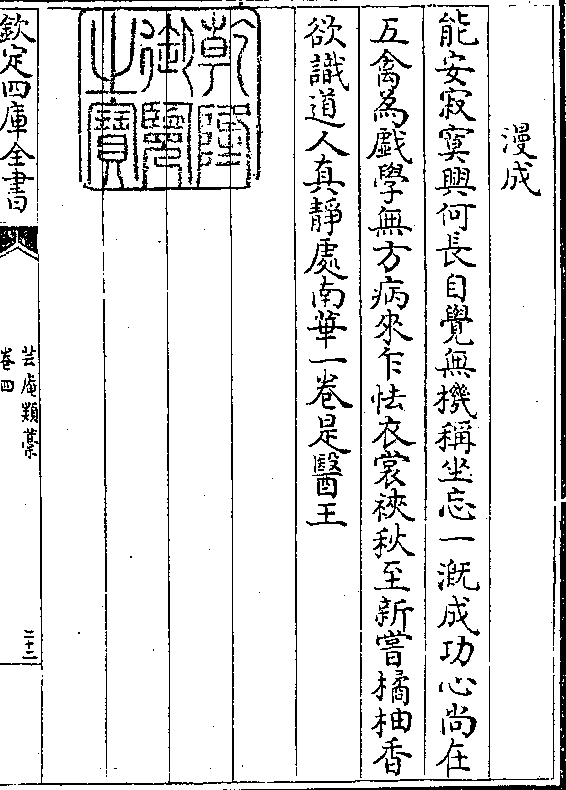 漫成
能安寂寞興何長自覺無機稱坐忘一溉成功心尚在
五禽為戯學無方病來乍怯衣裳裌秋至新嘗橘柚香
欲識道人真靜處南華一卷是醫王
乾隆御覽之寶
欽定四庫全書
芸庵類藁
卷四
二十二